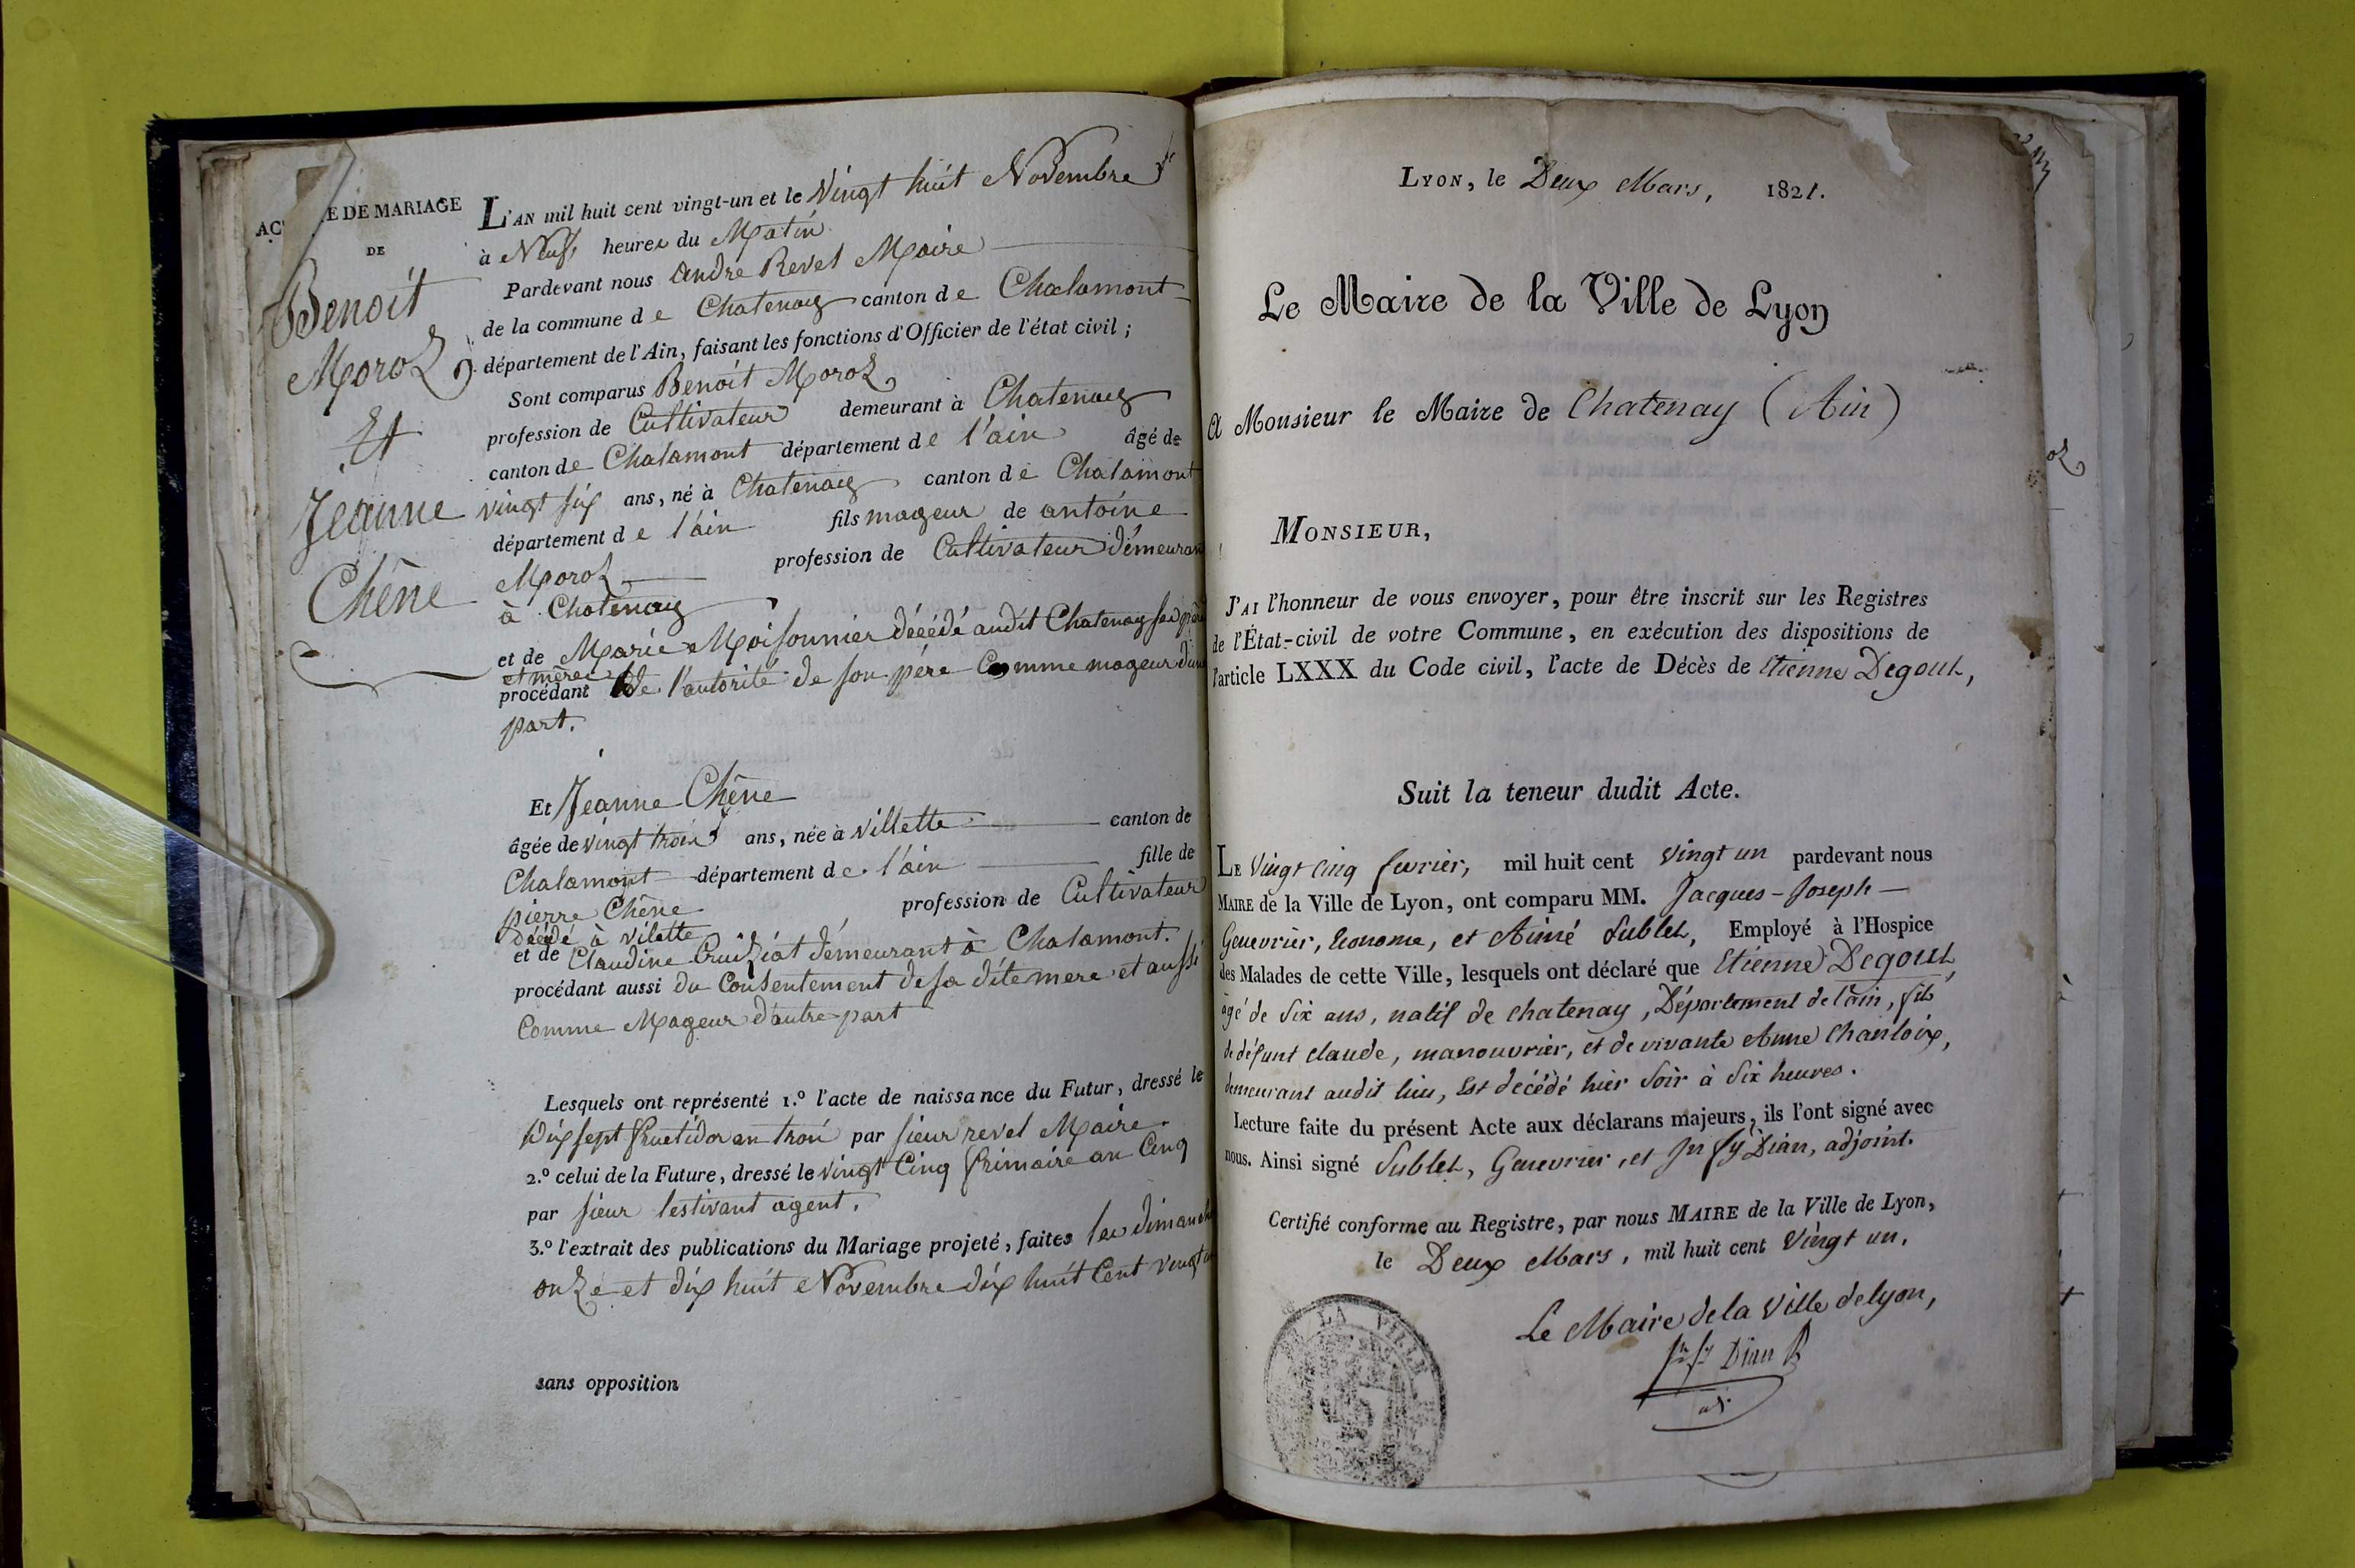 ACTE DE MARIAGE
DE
Benoit
Moroz
Et
Jeanne
Chêne
L'AN mil huit cent vingt-un et le Vingt huit Novembre
à Neuf heures du Matin
Pardevant nous andre Revel Maire
de la commune de Chatenay canton de Chalamont
département de l'Ain, faisant les fonctions d'Officier de l'état civil ;
Sont comparus Benoit Moroz
profession de Cultivateur demeurant à Chatenay
canton de Chalamont département de l'ain âgé de
vingt six ans, né à Chatenay canton de Chalamont
département de l'ain fils mageur de antoine
Moroz profession de Cultivateur démeurant
à Chatenay
et de Marie Moisonnier décédé audit Chatenay ses père
et mère
procédant de l'autorité de son père Comme mageur d'une
part.
Et Jeanne Chêne
âgée de vingt trois ans, née à villette canton de
Chalamont département de l'ain fille de
pierre Chêne profession de Cultivateur
décédé à vilette
et de Claudine Cruiziat démeurant à Chalamont.
procédant aussi du Consentement de sa dite mere et aussi
Comme Mageur d'autre part
Lesquels ont représenté 1.º l'acte de naissance du Futur, dressé le
Dix sept fructidor an troi par sieur revel Maire.
2.º celui de la Future, dressé le vingt Cinq frimaire an Cinq
par sieur lestivant agent.
3.º l'extrait des publications du Mariage projeté, faites les dimanche
onze et dix huit Novembre dix huit Cent vingt un
sans opposition
LYON, le Deux Mars, 1821.
Le Maire de la Ville de Lyon
A Monsieur le Maire de Chatenay (Ain)
MONSIEUR,
J'AI l'honneur de vous envoyer, pour être inscrit sur les Registres
de l'État-civil de votre Commune, en exécution des dispositions de
l'article LXXX du Code civil, l'acte de Décès de Etienne Degout,
Suit la teneur dudit Acte.
LE Vingt cinq fevrier, mil huit cent vingt un pardevant nous
MAIRE de la Ville de Lyon, ont comparu MM. Jacques-Joseph-
Genevrier, Econome, et Aimé Sublet, Employé à l'Hospice
des Malades de cette Ville, lesquels ont déclaré que Etienne Degout,
âgé de Six ans, natif de chatenay, Département de l'ain, fils
de défunt claude, manouvrier, et de vivante Anne Chanloix,
demeurant audit lieu, Est décédé hier Soir à Six heures.
Lecture faite du présent Acte aux déclarans majeurs, ils l'ont signé avec
nous. Ainsi signé Sublet, Genevrier, et Jn fs Dian, adjoint.
Certifié conforme au Registre, par nous MAIRE de la Ville de Lyon,
le Deux Mars, mil huit cent Vingt un.
Le Maire de la Ville de lyon,
Jn fs Dian
adj.
LA VILLE